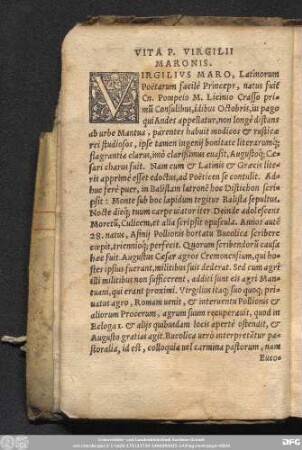 VITA P. VIRGILII
MARONIS.
VIRGILIVS MARO, Latinorum
Poëtarum facilè Princeps, natus fuit
Cn. Pompeio M. Licinio Crasso pri-
mũ Consulibus, idibus Octobris, in pago
qui Andes appellatur, non longè distans
ab urbe Mantua, parentes habuit modicos & rusticæ
rei studiosos, ipse tamen ingenij bonitate literarumq́;
flagrantia clarus, imò clarissimus euasit, Augustoq́; Cæ-
sari charus fuit. Nam cum & Latinis & Græcis lite-
ris apprimè esset edoctus, ad Poëticen se contulit. Ad-
huc ferè puer, in Balistam latronẽ hoc Distichon scri-
psit: Monte sub hoc lapidum tegitur Balista sepultus,
Nocte dieq́; tuum carpe uiator iter. Deinde adolescens
Moretũ, Culicem, et alia scripsit opuscula. Annos autẽ
28. natus, Asinij Pollionis hortatu Bucolica scribere
cœpit, triennioq́; perfecit. Quorum scribendorũ causa
hæc fuit. Augustus Cæsar agros Cremonensium, qui ho-
stes ipsius fuerant, militibus suis dederat. Sed cum agri
illi militibus non sufficerent, additi sunt eis agri Man-
tuani, qui erant proximi. Virgilius itaq́; suo quoq́; pri-
uatus agro, Romam uenit, & interuentu Pollionis &
aliorum Procerum, agrum suum recuperauit, quod in
Ecloga 1. & alijs quibusdam locis apertè ostendit, &
Augusto gratias agit. Bucolica uerò interpretãtur pa-
storalia, id est, colloquia uel carmina pastorum, nam
Buco-
DFG